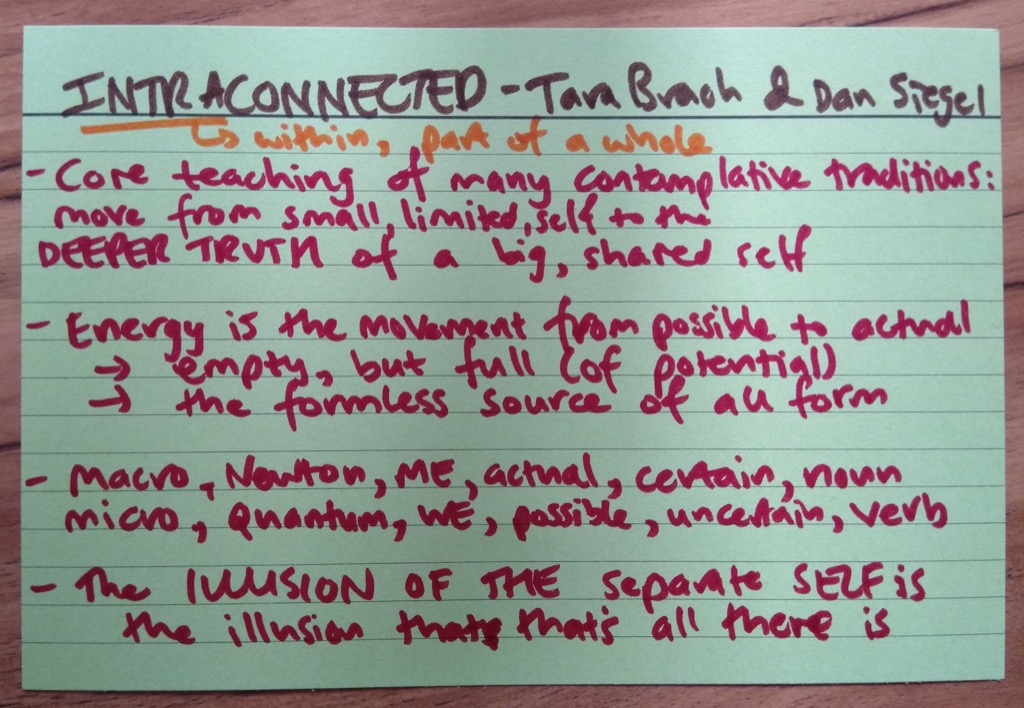 INTRACONNECTED - Tara Brach & Dan Siegel
↳ within, part of a whole
- Core teaching of many contemplative traditions:
move from small, limited, self to the
DEEPER TRUTH of a big, shared self
- Energy is the movement from possible to actual
→ empty, but full (of potential)
→ the formless source of all form
- Macro, Newton, ME, actual, certain, noun
micro, Quantum, WE, possible, uncertain, verb
- The ILLUSION OF THE separate SELF is
the illusion that that's all there is